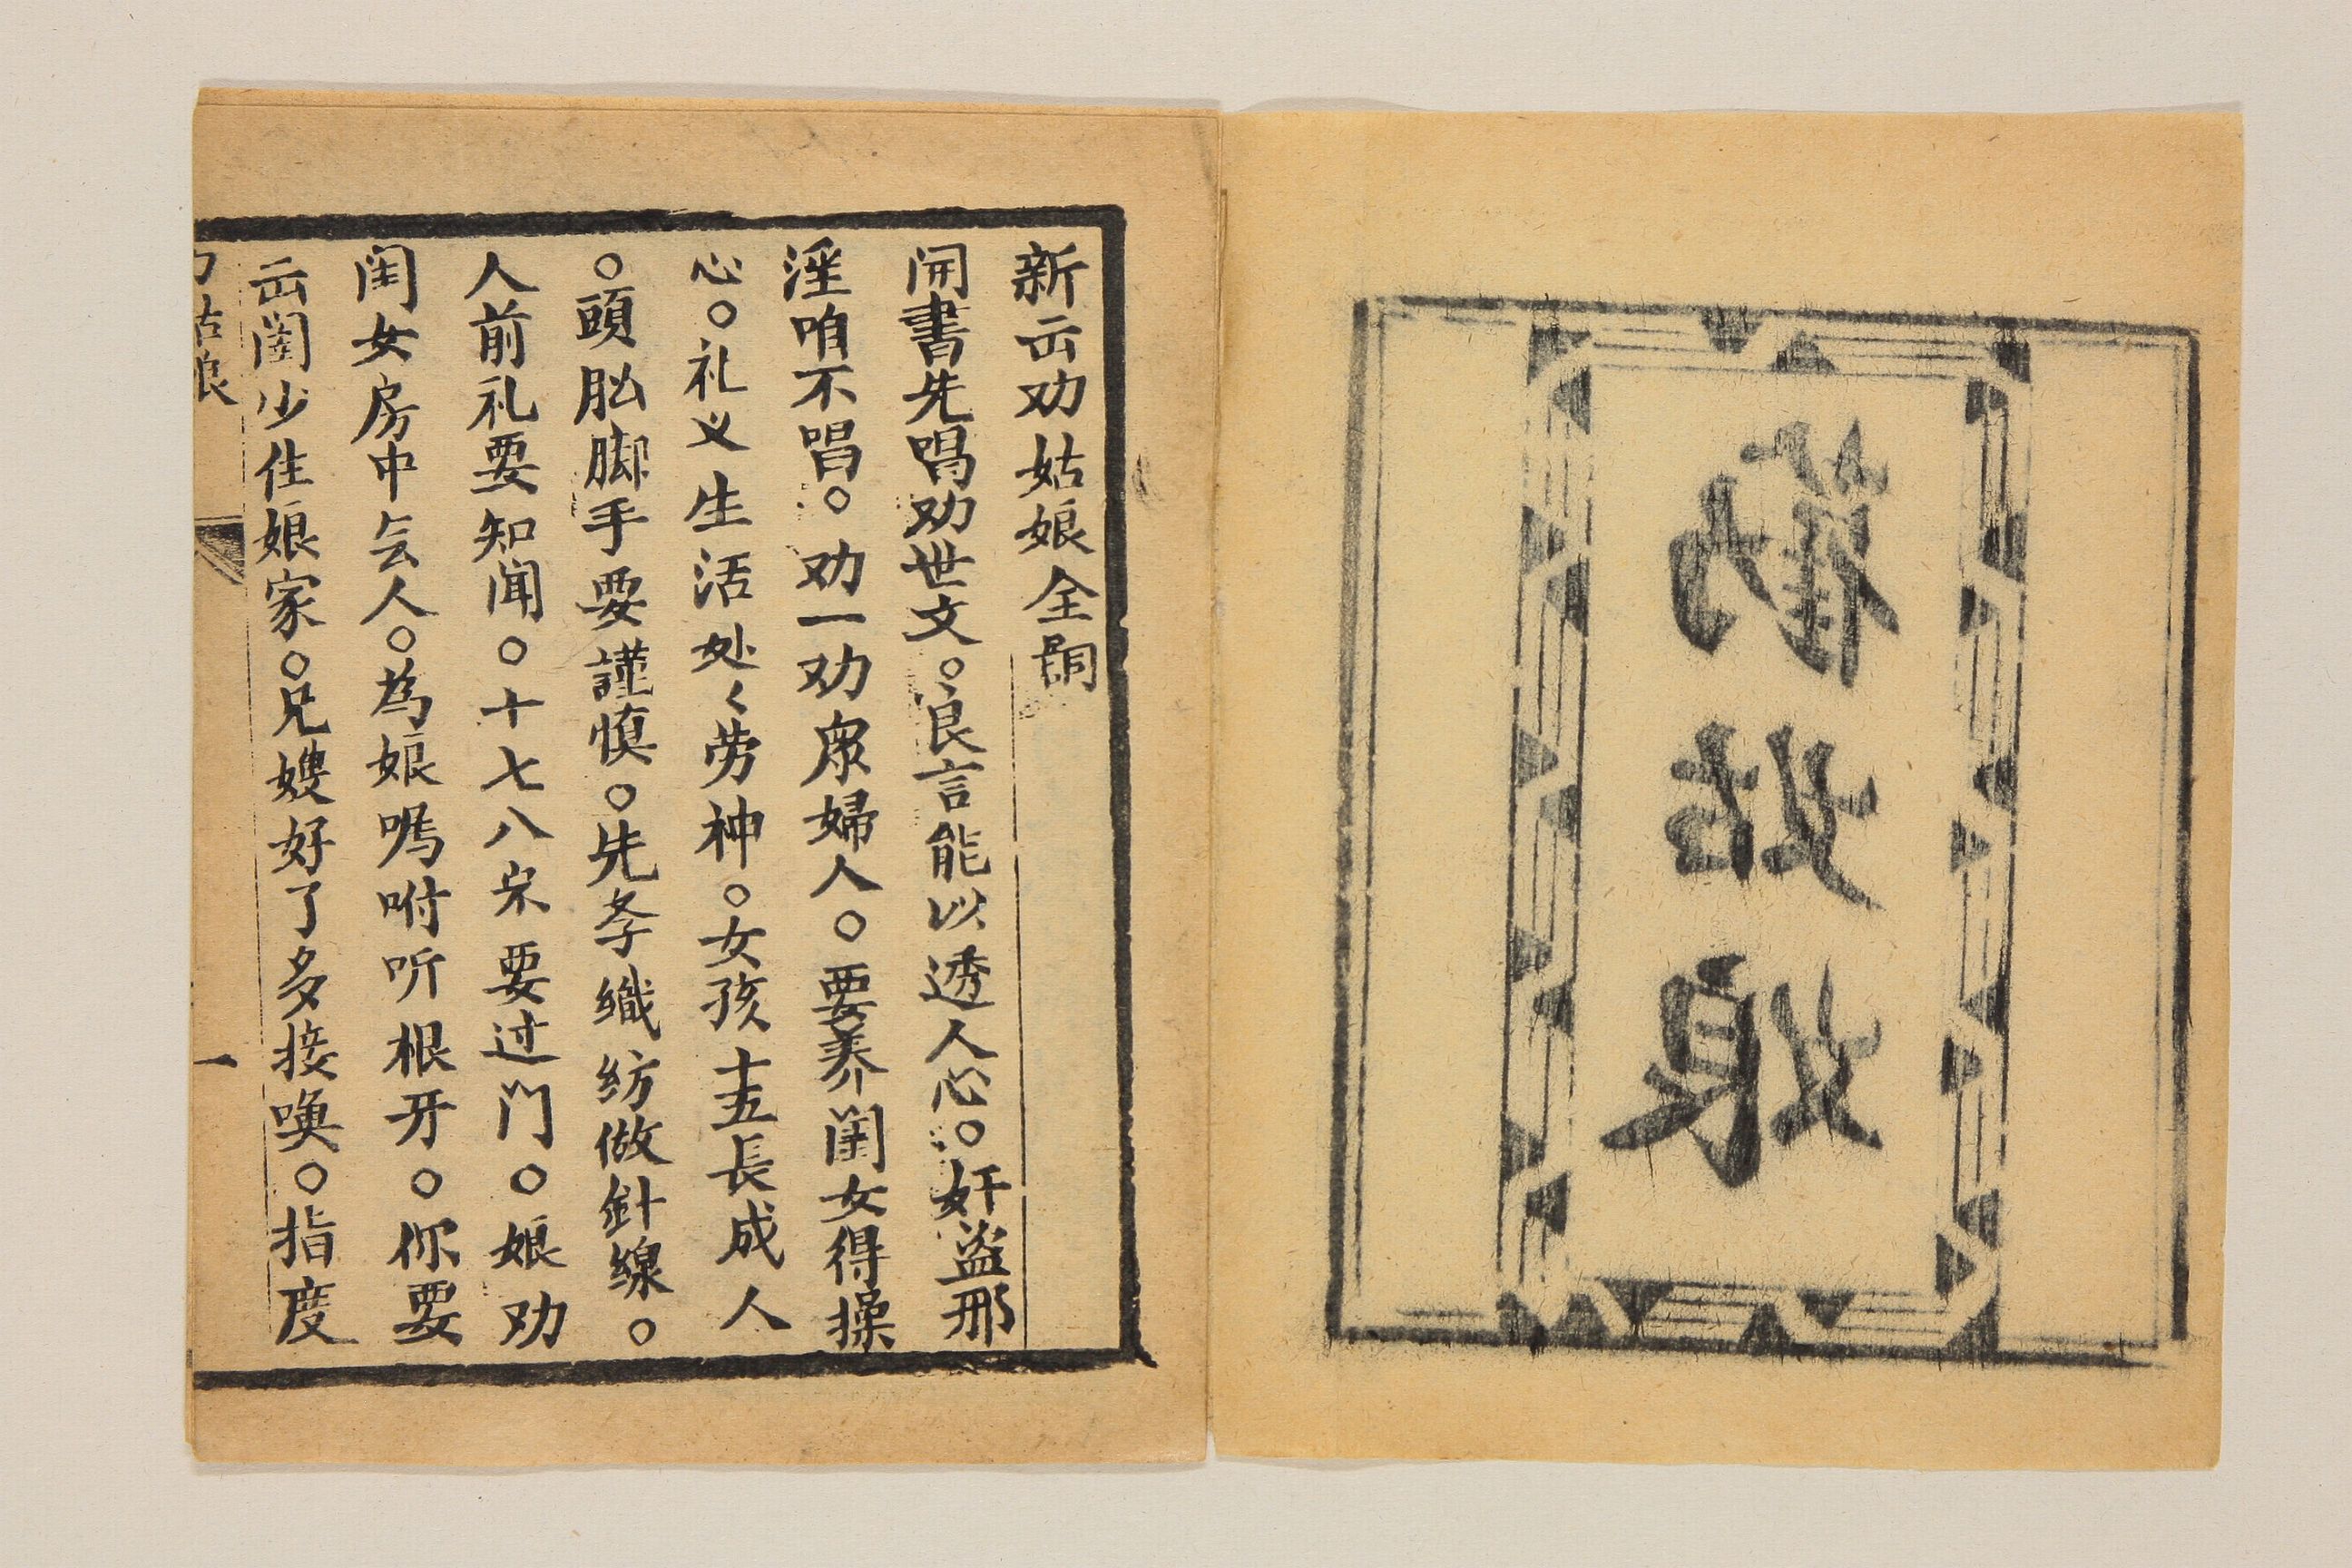 勸姑娘
新出劝姑娘全詞
開書先唱劝世文。良言能以透人心。奸盜邪
淫咱不唱。劝一劝眾婦人。要养闺女得操
心。礼义生活处々劳神。女孩十五長成人
。頭脚手要謹慎。先孝織紡做針線。
人前礼要知聞。十七八岁要过门。娘劝
闺女房中无人。為娘嘱咐听根牙。你要
出阁少住娘家。兄嫂好了多接喚。指度
劝姑娘 一